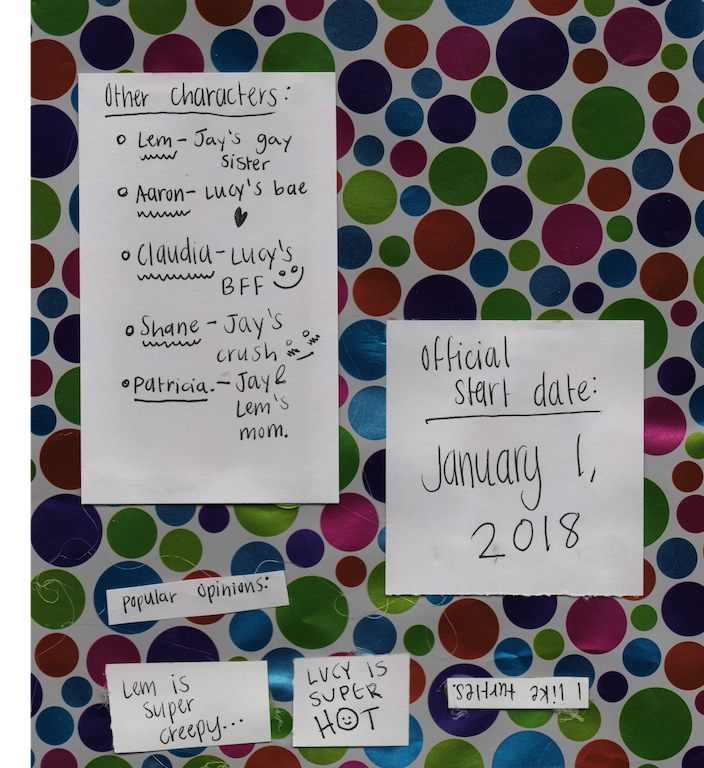 Other characters:
Lem - Jay's gay
sister
Aaron - Lucy's bae
Claudia - Lucy's
BFF
Shane - Jay's
crush
Patricia. - Jay &
Lem's
mom.
Official
start date:
January 1,
2018
popular opinions:
Lem is
super
creepy...
LUCY IS
SUPER
HOT
I like turtles.